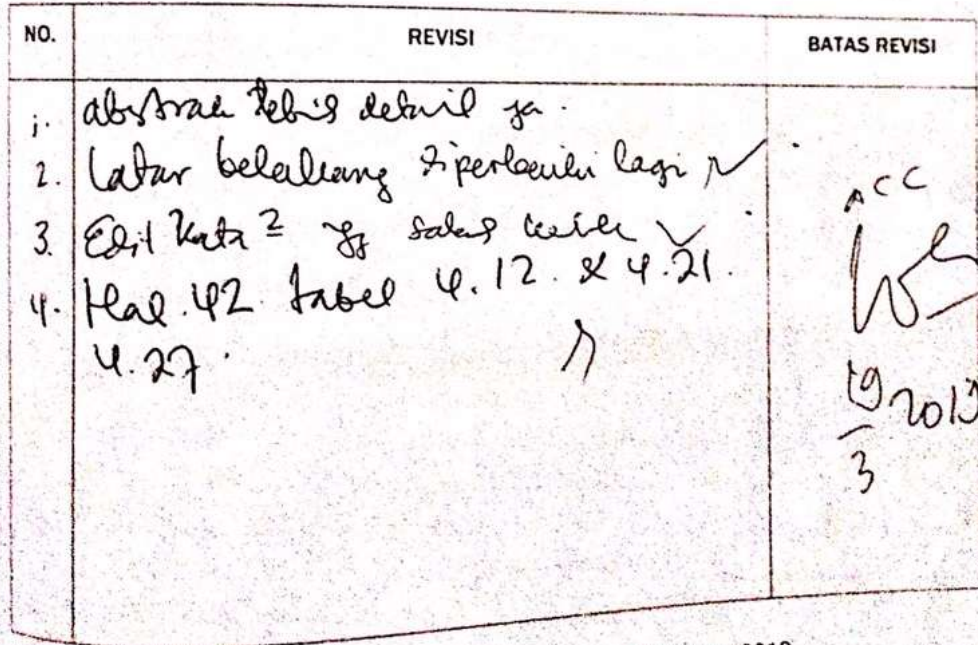 NO. REVISI BATAS REVISI
1. abstrak lebih detail ya.
2. Latar belakang diperbaiki lagi
3. Edit kata2 yg salah
4. Hal. 42 tabel 4.12. & 4.21.
4.27.
ACC
19
3